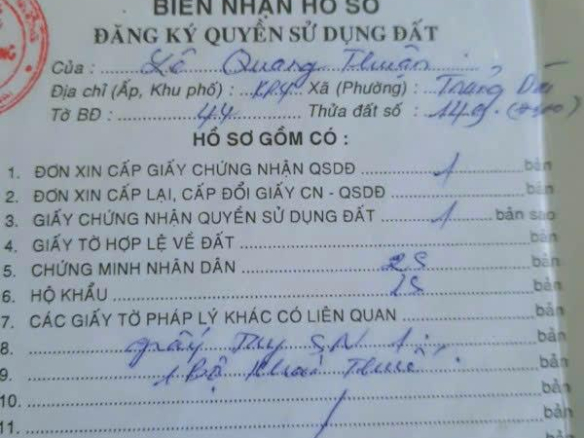 BIÊN NHẬN HỒ SƠ
ĐĂNG KÝ QUYỀN SỬ DỤNG ĐẤT
Của : Lê Quang Thuận
Địa chỉ (Ấp, Khu phố) : KP4 Xã (Phường) : Trảng Dài
Tờ BĐ : 44 Thửa đất số : 149
HỒ SƠ GỒM CÓ :
1. ĐƠN XIN CẤP GIẤY CHỨNG NHẬN QSDĐ 1 bản
2. ĐƠN XIN CẤP LẠI, CẤP ĐỔI GIẤY CN - QSDĐ bản
3. GIẤY CHỨNG NHẬN QUYỀN SỬ DỤNG ĐẤT 1 bản sao
4. GIẤY TỜ HỢP LỆ VỀ ĐẤT bản
5. CHỨNG MINH NHÂN DÂN 2S bản
6. HỘ KHẨU 1S bản
7. CÁC GIẤY TỜ PHÁP LÝ KHÁC CÓ LIÊN QUAN bản
8. giấy tay SN 1 bản
9. 1 Bộ khai thuế bản
10. bản
11. bản